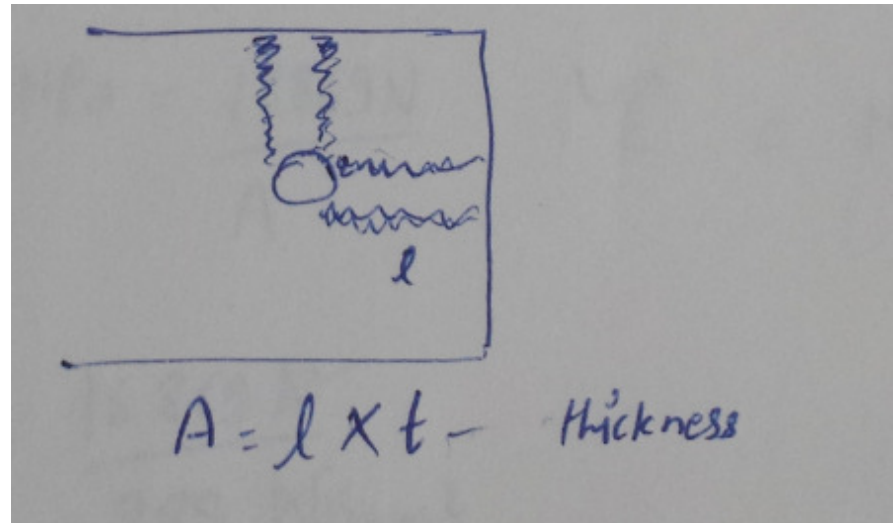 l
A = l x t - thickness